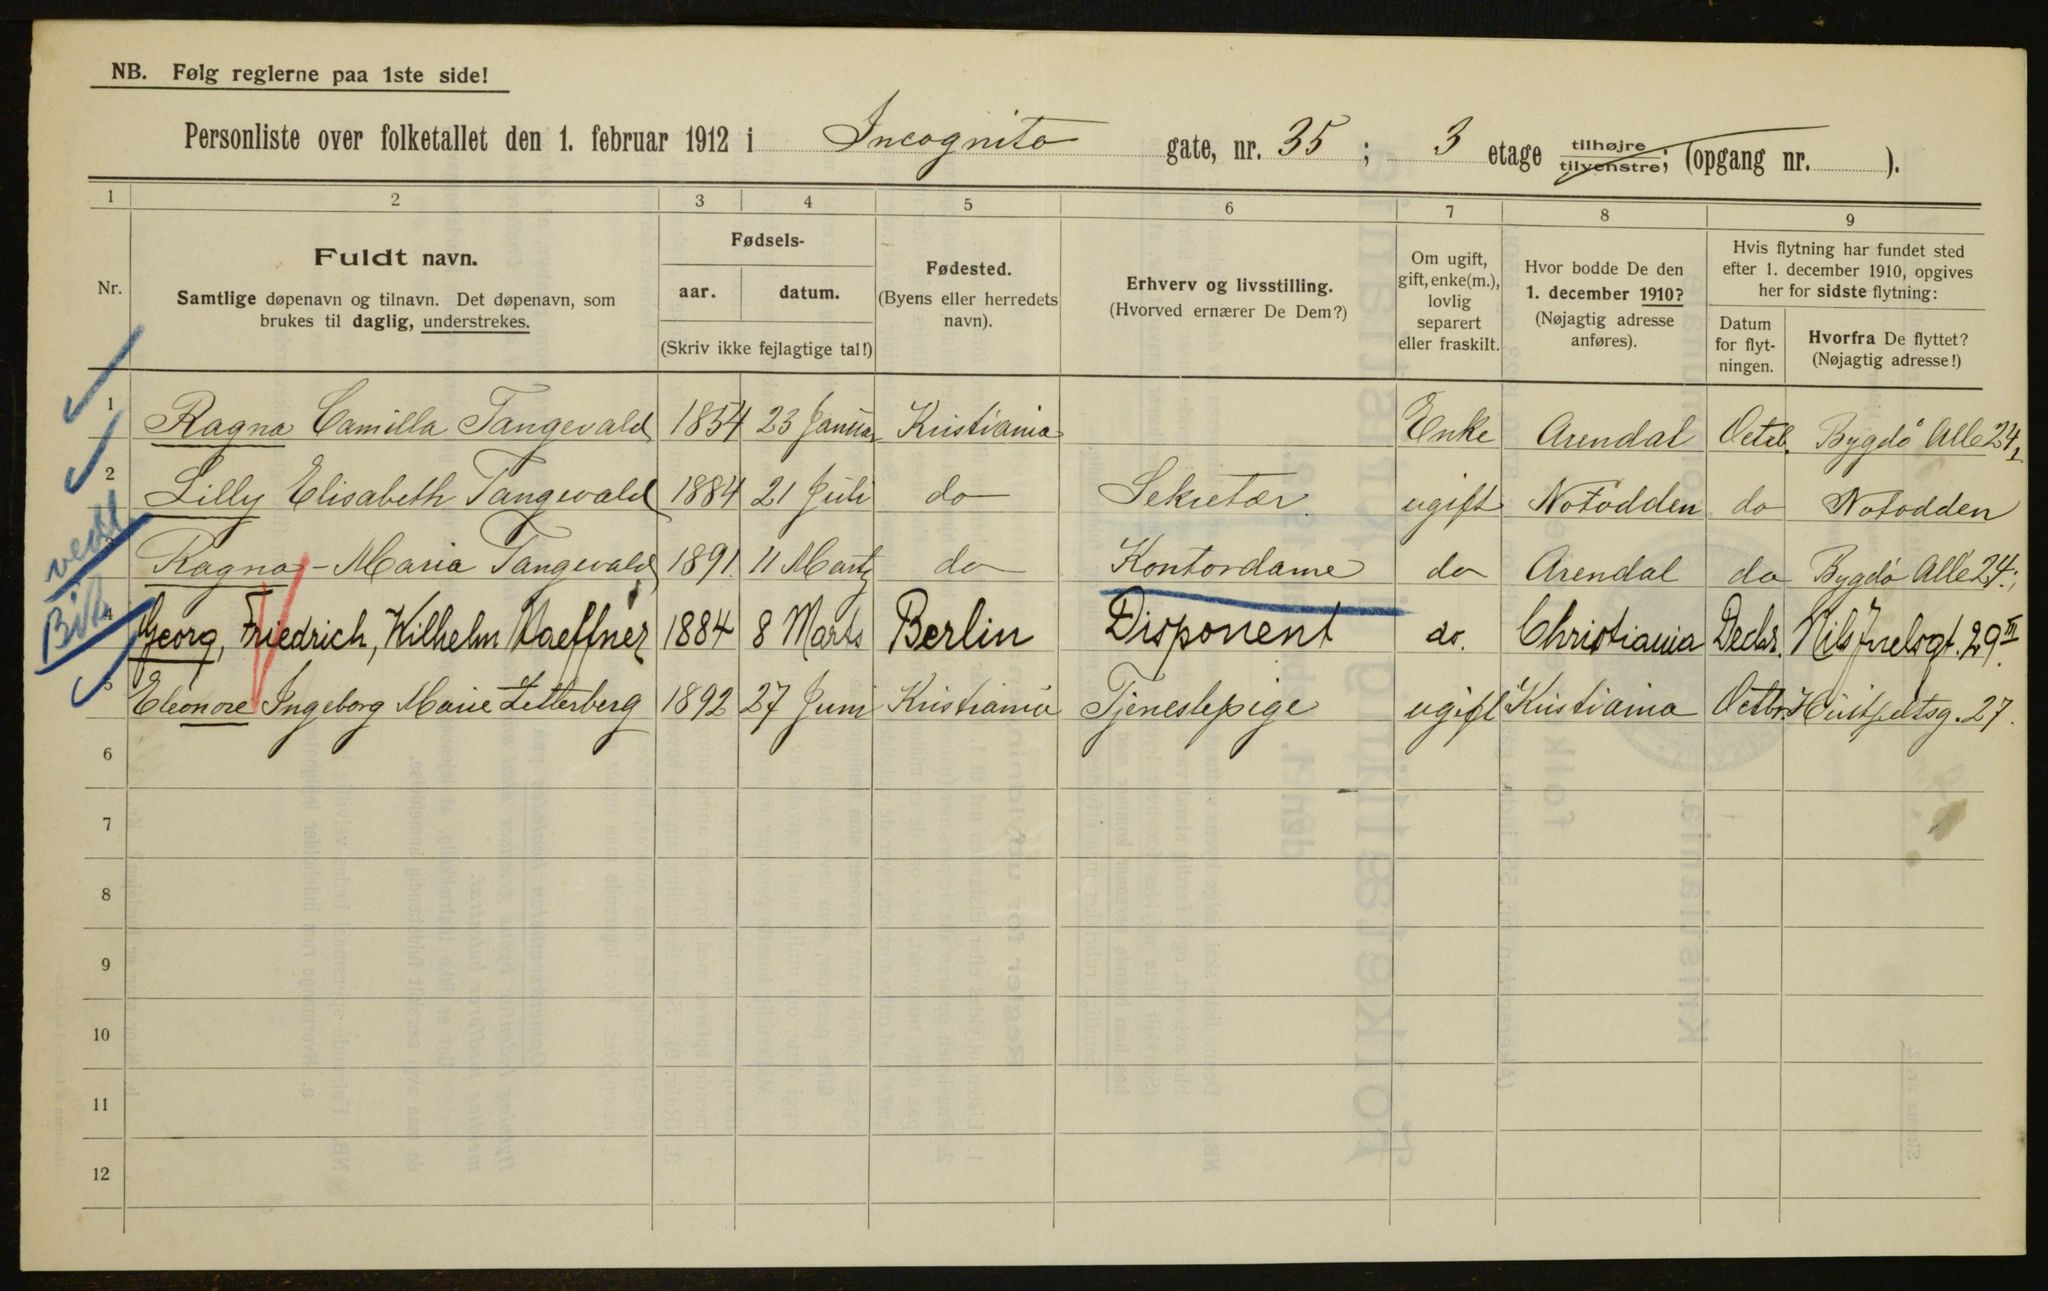 NB. Følg reglerne paa 1ste side!
Personliste over folketallet den 1. februar 1912 i Incognito gate, nr. 35; 3 etage tilhøjre tilvenstre; (opgang nr. ).
1 2 3 4 5 6 7 8 9
Nr. Fuldt navn. Samtlige døpenavn og tilnavn. Det døpenavn, som
brukes til daglig, understrekes.
Fødsels-
aar. datum.
(Skriv ikke fejlagtige tal!)
Fødested.
(Byens eller herredets
navn).
Erhverv og livsstilling.
(Hvorved ernærer De Dem?)
Om ugift,
gift, enke(m.),
lovlig
separert
eller fraskilt.
Hvor bodde De den
1. december 1910?
(Nøjagtig adresse
anføres).
Hvis flytning har fundet sted
efter 1. december 1910, opgives
her for sidste flytning:
Datum
for flyt-
ningen.
Hvorfra De flyttet?
(Nøjagtig adresse!)
1 Ragna Camilla Tangevald 1854 23 Januar Kristiania Enke Arendal Octbl. Bygdö Alle 24,
2 Lilly Elisabeth Tangevald 1884 21 Juli do Sekretær ugift Notodden do Notodden
3 Ragna - Maria Tangevald 1891. 11 Martz do Kontordame do Arendal do Bygdö Alle 24.
4 Georg, Friedrich, Wilhelm Haeffner 1884 8 Marts Berlin Disponent do. Christiania Decbr. Nils Juelsgt. 29 III
5 Eleonore Ingeborg Marie Zetterberg 1892 27 Juni Kristiania Tjenestepige ugift Kristiania Octbr. Huitfeltsg. 27.
6
7
8
9
10
11
12